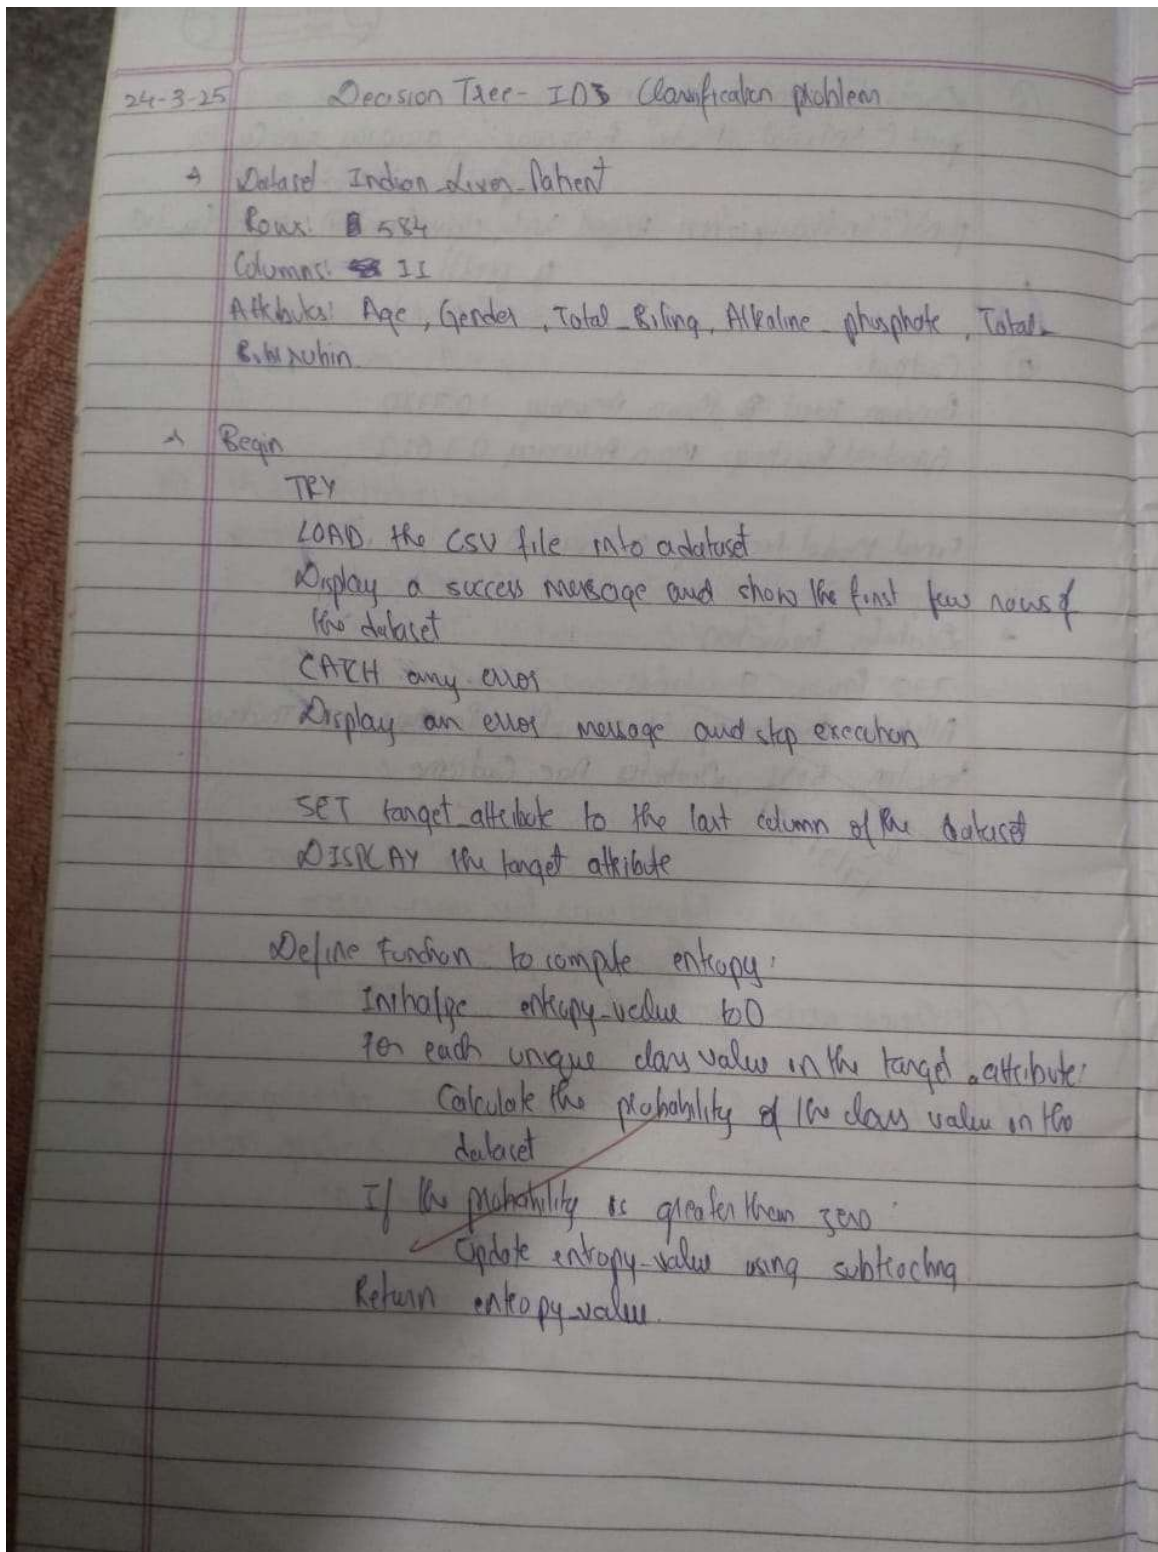 24-3-25 Decision Tree- ID3 Classification problem
→ Dataset Indian_Liver_Patient
Rows: 584
Columns: 11
Attributes: Age, Gender, Total_Biling, Alkaline_phosphate, Total_
Begin
TRY
LOAD the CSV file into a dataset
Display a success message and show the first few rows of
the dataset
CATCH any error
Display an error message and stop execution
SET target_attribute to the last column of the dataset
DISPLAY the target attribute
Define Function to compute entropy:
Initialize entropy_value to 0
For each unique class value in the target_attribute:
Calculate the probability of the class value in the
dataset
If the probability is greater than zero:
Update entropy_value using subtracting
Return entropy_value.